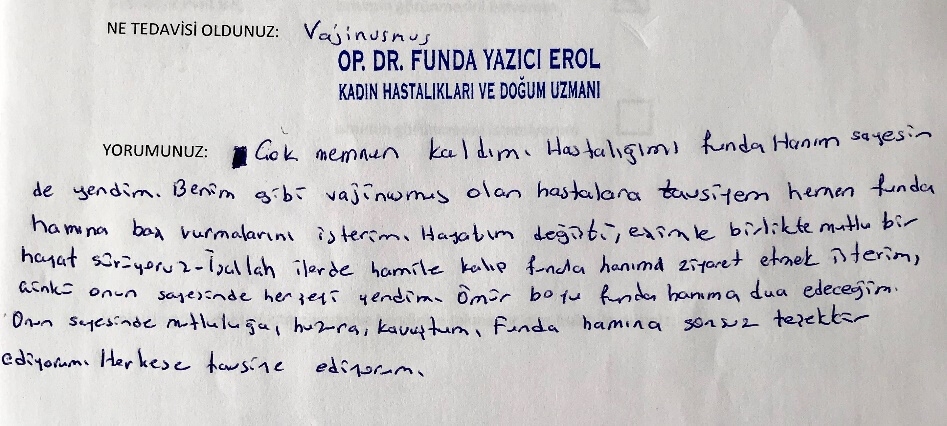 NE TEDAVİSİ OLDUNUZ: Vajinusmus
OP. DR. FUNDA YAZICI EROL
KADIN HASTALIKLARI VE DOĞUM UZMANI
YORUMUNUZ: Çok memnun kaldım. Hastalığımı funda Hanım sayesin
de yendim. Benim gibi vajinusmus olan hastalara tavsiyem hemen funda
hamına baş vurmalarını isterim. Hayatım değişti, eşimle birlikte mutlu bir
hayat sürüyoruz-İşallah ilerde hamile kalıp funda hanımı ziyaret etmek isterim,
çünkü onun sayesinde herşeyi yendim. Ömür boyu funda hanıma dua edeceğim.
Onun sayesinde mutluluğa, huzura, kavuştum. Funda hamına sonsuz teşekkür
ediyorum. Herkese tavsiye ediyorum.